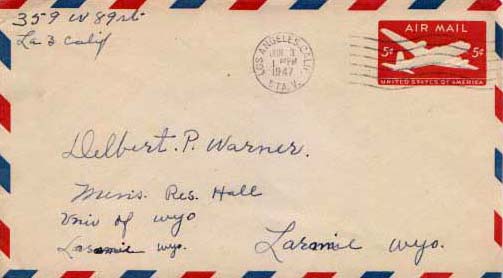 359 W 89 st
La 3 Calif
LOS ANGELES, CALIF.
3
1 PM
1947
STA. V.
AIR MAIL
5¢ 5¢
UNITED STATES OF AMERICA
Delbert. P. Warner.
Mens. Res. Hall
Univ of wyo
Laramie wyo.
Laramie wyo.